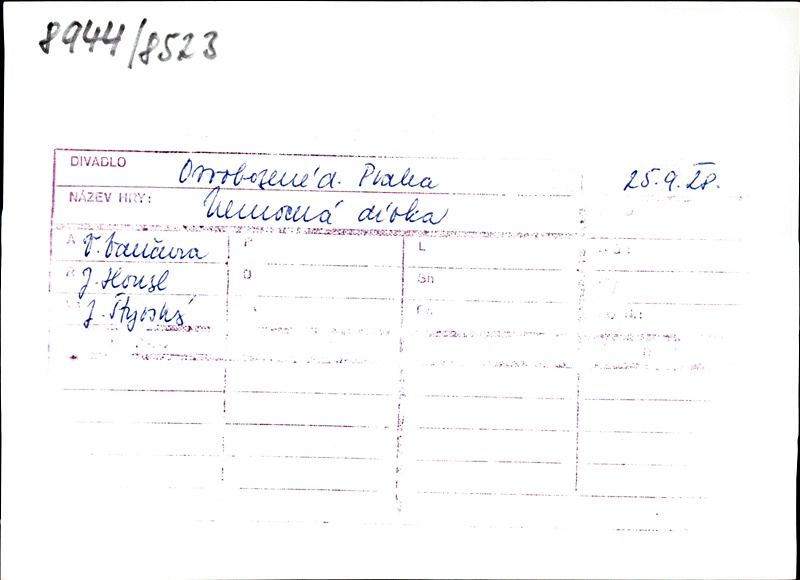 8944/8523
DIVADLO Osvobozené d. Praha 25.9.28.
NÁZEV HRY: Nemocná dívka
A V. Vančura P L
R J. Honzl O Sh
J. Štyrský